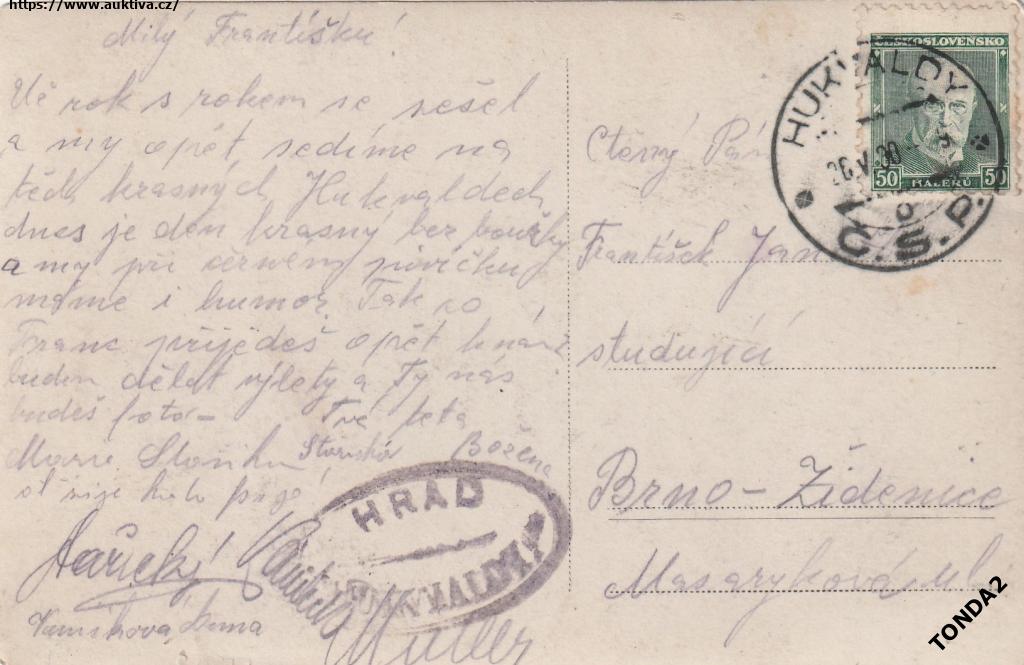 https://www.auktiva.cz/
Milý Františku!
Už rok s rokem se sešel
a my opět sedíme na
těch krasných Hukvaldech
dnes je den krasný bez bouřky
a my při červeném pivíčku
máme i humor. Tak co
Franc přijedeš opět k nám
budem dělat výlety a Ty nás
budeš foto-
Tvé teta
Božena
Marie
Müller
HRAD
HUKVALDY
ČESKOSLOVENSKO
50 HALÉŘŮ 50
HUKVALDY
26.V.30
Č.S.P.
Ctěný Pán
František
studující
Brno-Židenice
Masaryková ul.
TONDA2